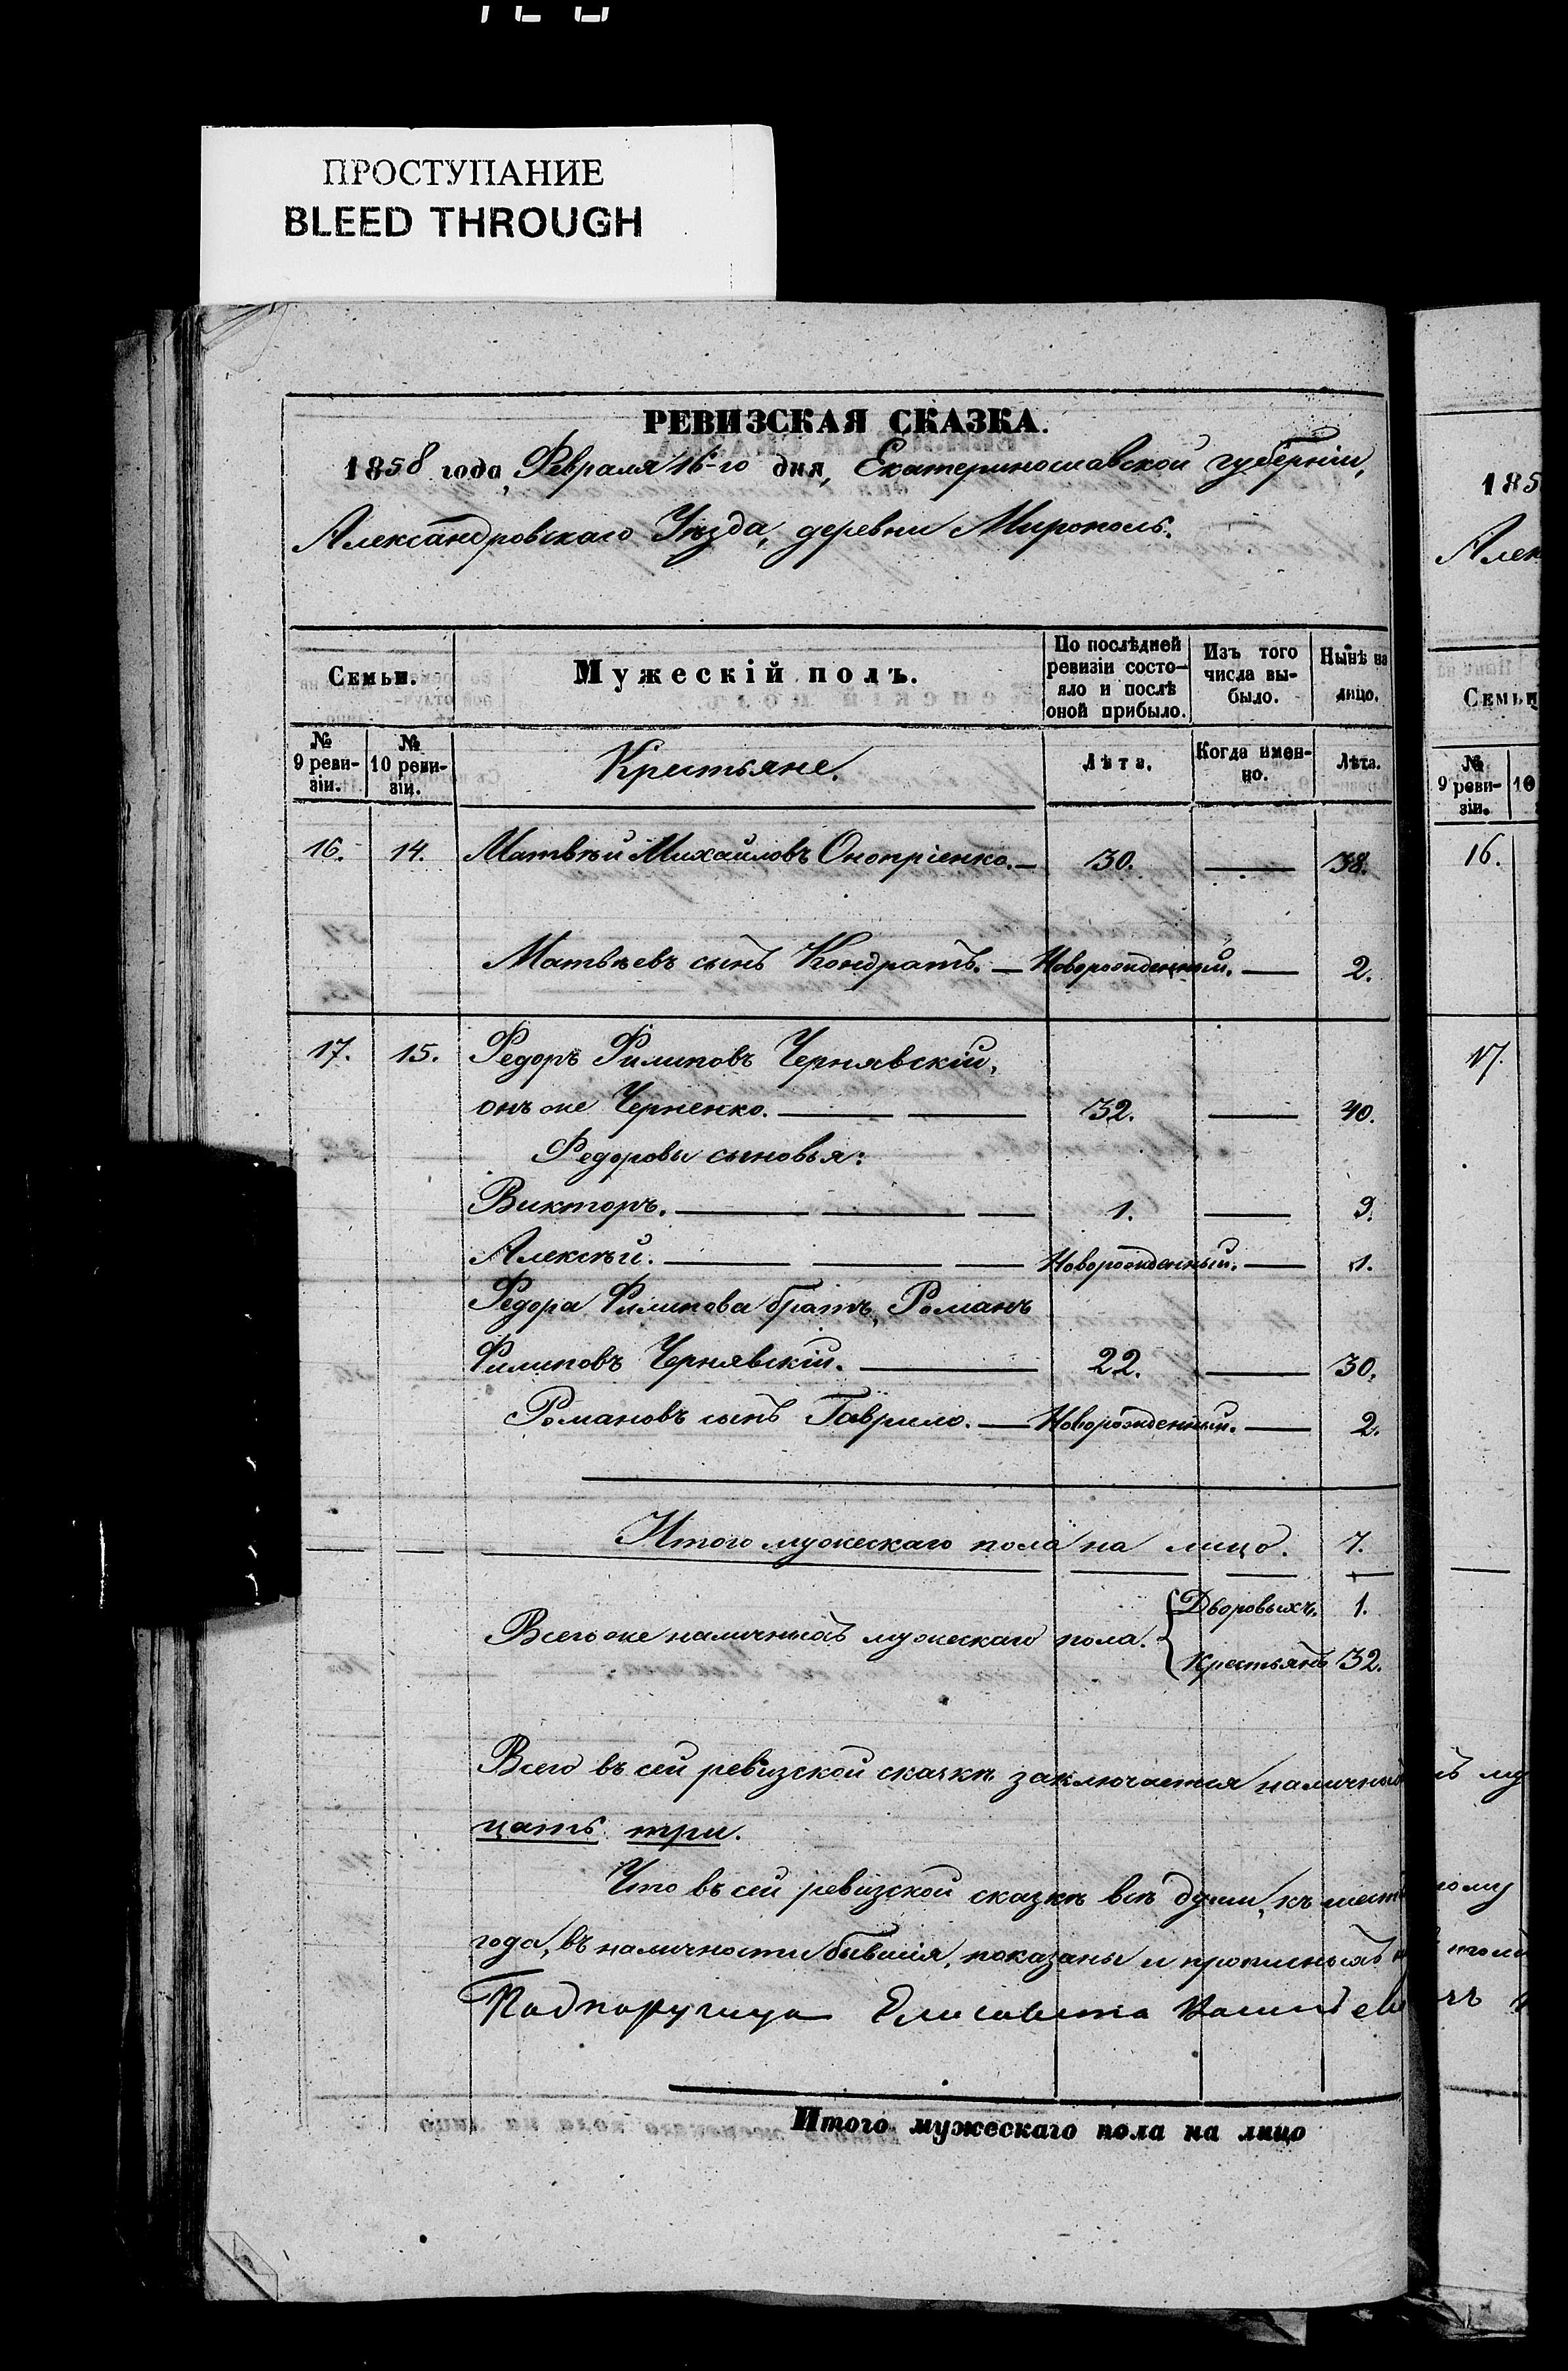 ПРОСТУПАНИЕ
BLEED THROUGH
РЕВИЗСКАЯ СКАЗКА.
1858 года, Февраля 16-го дня, Екатеринославской губерніи,
Александровскаго Уѣзда, деревни Мирополь.
Семьи.
Мужескій полъ.
По послѣдней ревизіи состо-
яло и послѣ
оной прибыло.
Изъ того
числа вы-
было.
Нынѣ на
лицо.
№
9 реви-
зіи.
№
10 реви-
зіи.
Крестьяне.
Лѣта.
Когда имен-
но.
Лѣта.
16. 14. Матвѣй Михайловъ Оноприенко. — 30. — 38.
Матвѣевъ сынъ Кондратъ. — Новорожденный. — 2.
17. 15. Федоръ Филиповъ Чернявскій,
онъ же Черненко. — 32. — 40.
Федоровы сыновья:
Викторъ. — 1. — 9.
Алексѣй. — Новорожденный. — 1.
Федора Филипова братъ, Романъ
Филиповъ Чернявскій. — 22. — 30.
Романовъ сынъ Гаврило. — Новорожденный. — 2.
Итого мужескаго пола на лицо. 7.
Всего же наличныхъ мужескаго пола. Дворовыхъ. 1.
Крестьянъ 32.
Всего въ сей ревизской сказкѣ заключается
цать три.
Что въ сей ревизской сказкѣ всѣ души, къ
года, въ наличности бывшія, показаны и прописныхъ
Подпоручица Елисавета
Итого мужескаго пола на лицо
185
Алек
Семьи
№
9 реви-
зіи.
10
16.
17.